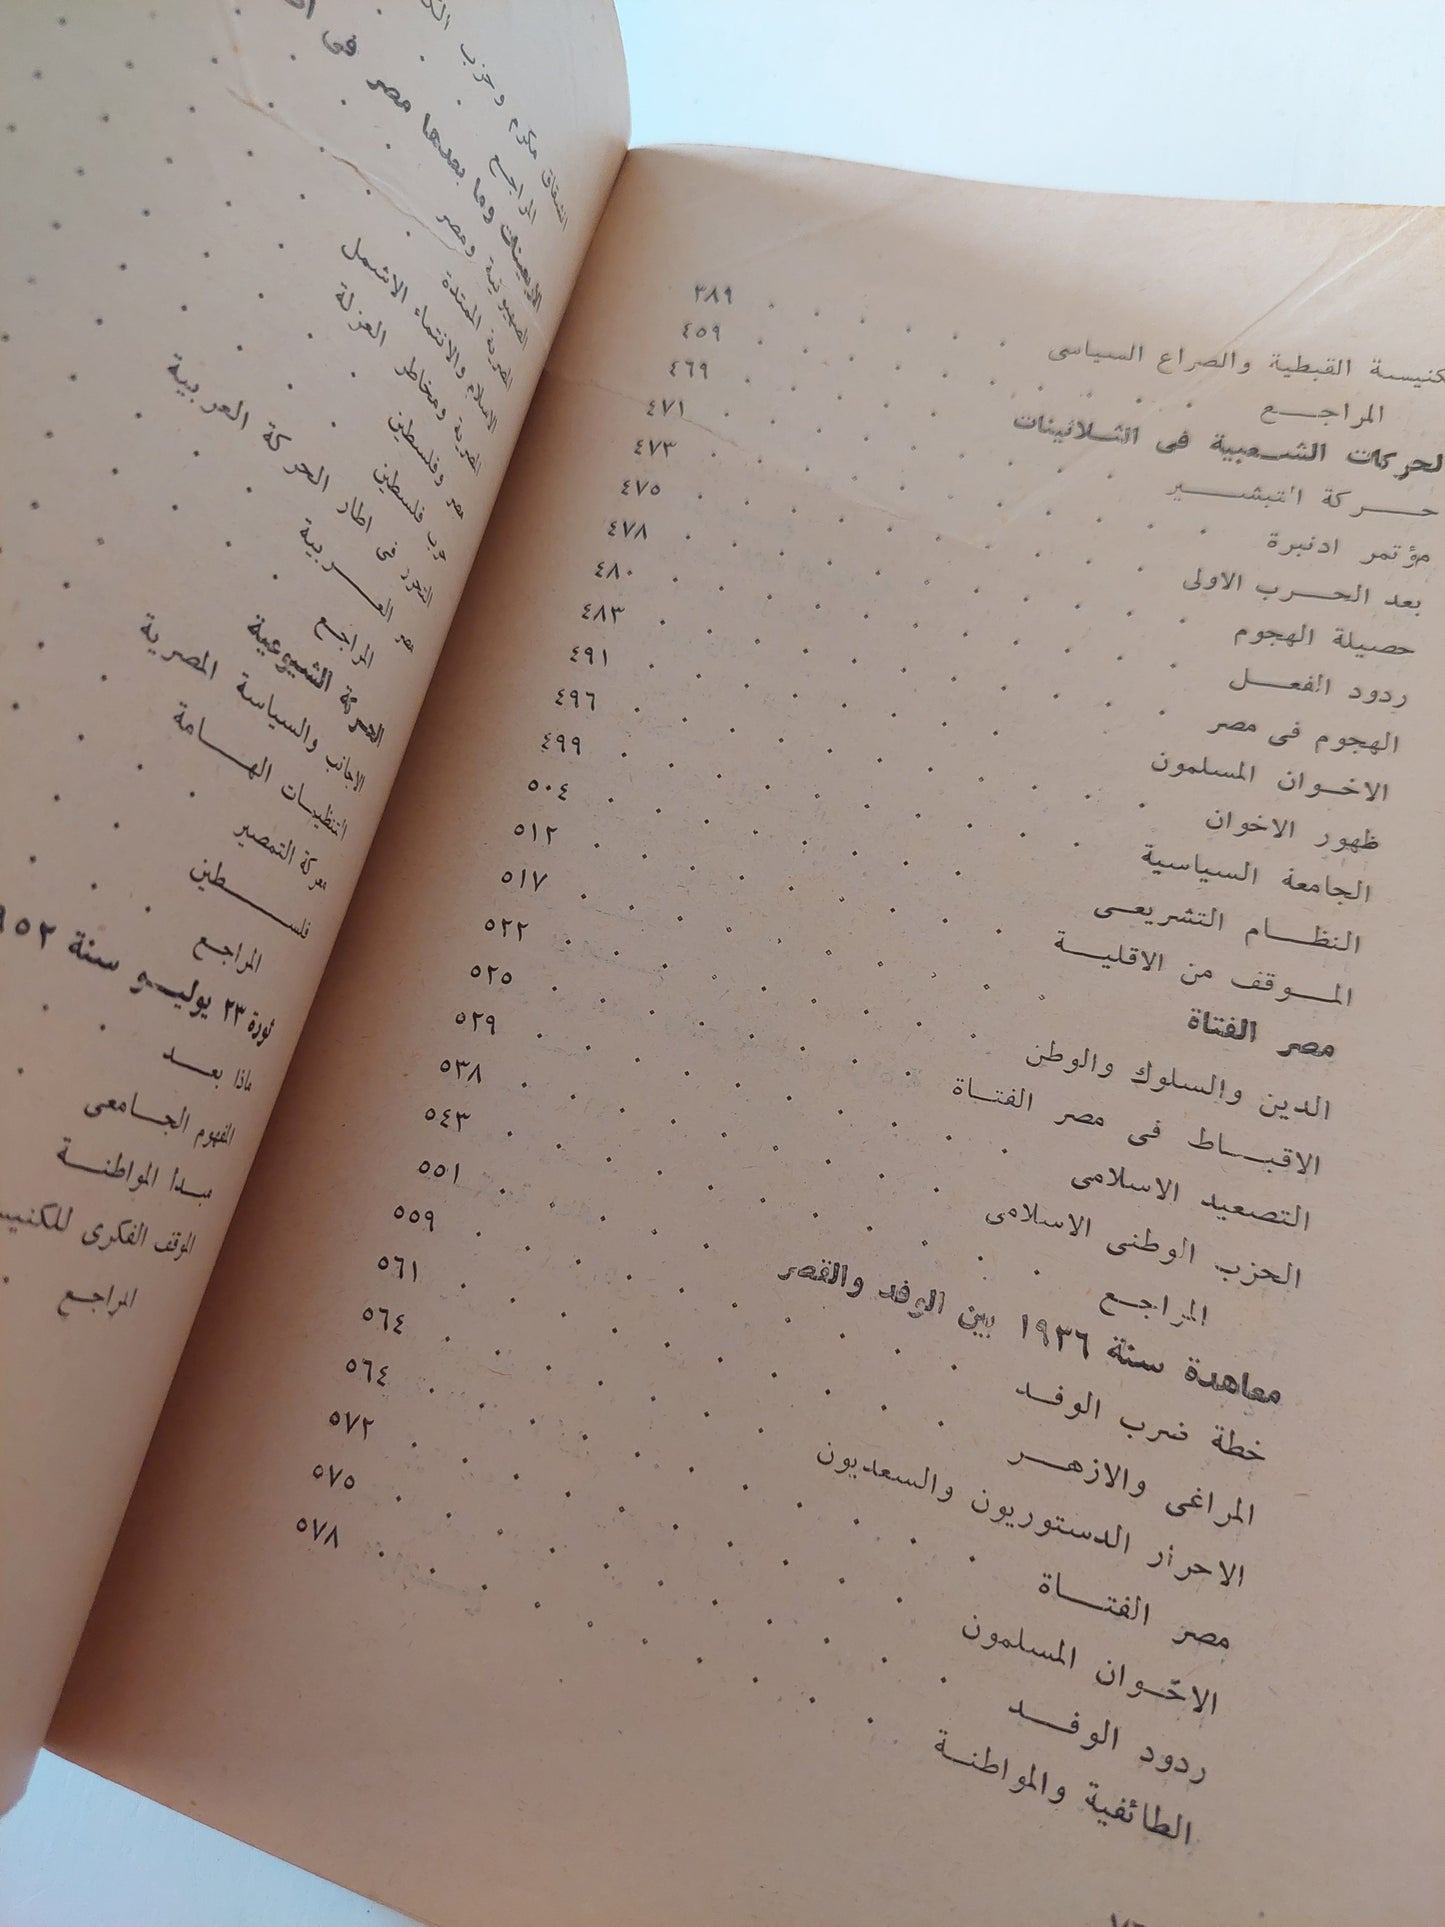 كنيسة القبطية والصراع السياسى ٣٨٩
المراجع ٤٥٩
الحركات الشعبية فى الثلاثينات ٤٦٩
حركة التبشير ٤٧١
مؤتمر ادنبرة ٤٧٣
بعد الحرب الاولى ٤٧٥
حصيلة الهجوم ٤٧٨
ردود الفعل ٤٨٠
الهجوم فى مصر ٤٨٣
الاخوان المسلمون ٤٩١
ظهور الاخوان ٤٩٦
الجامعة السياسية ٤٩٩
النظام التشريعى ٥٠٤
الموقف من الاقلية ٥١٢
مصر الفتاة ٥١٧
الدين والسلوك والوطن ٥٢٢
الاقباط فى مصر الفتاة ٥٢٥
التصعيد الاسلامى ٥٢٩
الحزب الوطنى الاسلامى ٥٣٨
المراجع ٥٤٣
معاهدة سنة ١٩٣٦ بين الوفد والقصر ٥٥١
خطة ضرب الوفد ٥٥٩
المراغى والازهر ٥٦١
الاحرار الدستوريون والسعديون ٥٦٤
مصر الفتاة ٥٦٤
الاخوان المسلمون ٥٧٢
ردود الوفد ٥٧٥
الطائفية والمواطنة ٥٧٨
انشقاق مكرم وحزب
المراجع
الأربعينات وما بعدها مصر فى
الصهيونية ومصر
المصرية الممتدة
الاسلام والانتماء الاشمل
المصرية ومخاطر العزلة
مصر وفلسطين
حرب فلسطين
التحرر فى اطار الحركة العربية
مصر العربية
المراجع
الحركة الشيوعية
الاجانب والسياسة المصرية
التنظيمات الهامة
معركة التمصير
فلسطين
المراجع
ثورة ٢٣ يوليو سنة ١٩٥٢
ماذا بعد
المفهوم الجامعى
مبدأ المواطنة
الموقف الفكرى للكنيسة
المراجع